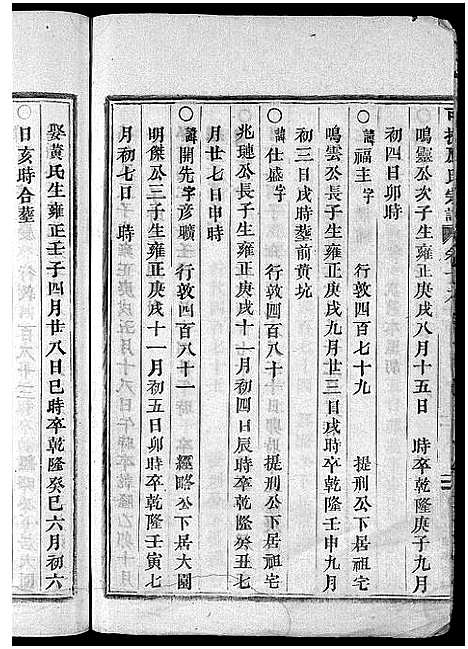 鳴靈公次子生雍正庚戌八月十五日　時卒乾隆庚子九月
初四日卯時
〇諱福主字　行敦四百七十九　提刑公下居祖宅
鳴雲公長子生雍正庚戌九月廿三日戌時卒乾隆壬申九月
初三日戌時葬前黃坑
〇諱仕盛字　行敦四百八十　提刑公下居祖宅
兆璉公長子生雍正庚戌十一月初四日辰時卒乾隆癸丑七
月廿七日申時
〇諱開先字彥曠　行敦四百八十一　經略公下居大園
明傑公三子生雍正庚戌十一月初五日卯時卒乾隆壬寅七
月初七日　時
娶黃氏生雍正壬子四月廿八日巳時卒乾隆癸巳六月初六
日亥時合葬